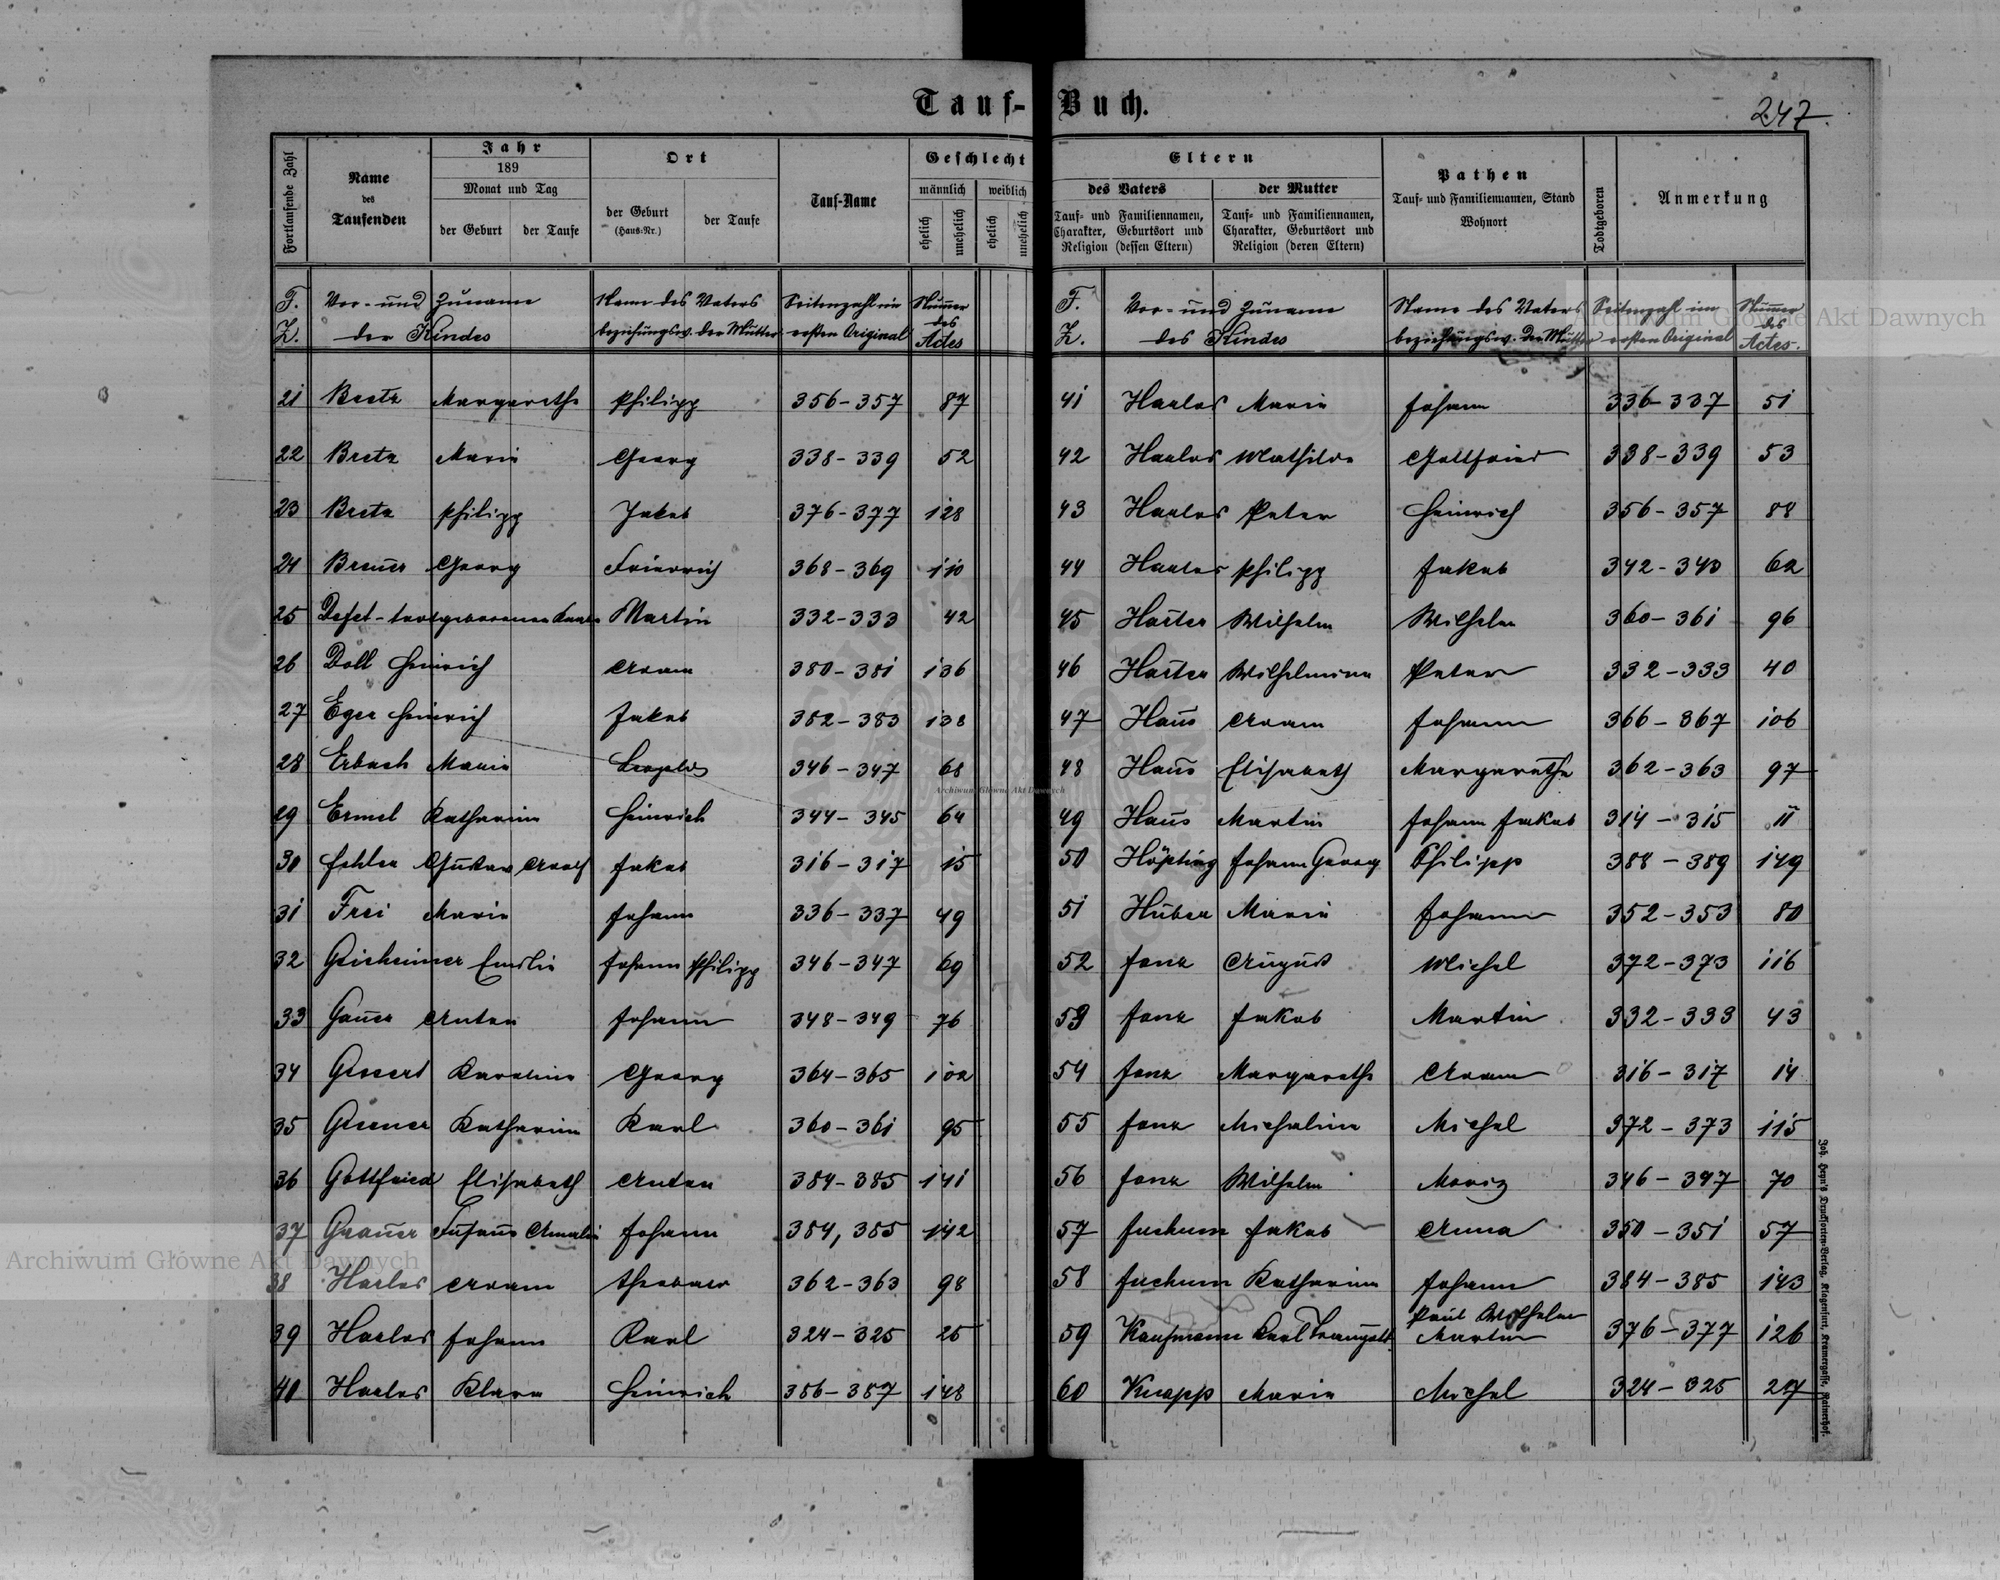 Tauf-Buch.
247.
Fortlaufende Zahl
Name des Taufenden
Jahr
189
Monat und Tag
der Geburt
der Taufe
Ort
der Geburt (Haus-Nr.)
der Taufe
Tauf-Name
Geschlecht
männlich
weiblich
ehelich
unehelich
ehelich
unehelich
F. Z.
Vor- und Zuname
des Kindes
Name des Vaters
beziehungsw. der Mutter
Seitenzahl im
ersten Original
Nummer des Actes
21 Bretz Margarethe Philipp 356-357 87
22 Bretz Maria Georg 338-339 52
23 Bretz Philipp Jakob 376-377 128
24 Breuer Georg Friedrich 368-369 110
25 Martin 332-333 42
26 Doll Heinrich Adam 380-381 136
27 Eger Heinrich Jakob 382-383 138
28 Erbach Maria Leopold 346-347 68
29 Ermel Katharina Heinrich 344-345 64
30 Gustav Adolf Jakob 316-317 15
31 Frei Maria Johann 336-337 49
32 Emilie Johann Philipp 346-347 69
33 Gauer Anton Johann 348-349 76
34 Karoline Georg 364-365 102
35 Katharina Karl 360-361 95
36 Gottfried Elisabeth Anton 384-385 141
37 Johann 384, 385 142
38 Harlos Adam Theobald 362-363 98
39 Harlos Johann Karl 324-325 25
40 Harlos Klara Heinrich 386-387 148
Eltern
des Vaters
der Mutter
Tauf- und Familiennamen,
Charakter, Geburtsort und
Religion (dessen Eltern)
Tauf- und Familiennamen,
Charakter, Geburtsort und
Religion (deren Eltern)
Pathen
Tauf- und Familiennamen, Stand
Wohnort
Todtgeboren
Anmerkung
F. Z.
Vor- und Zuname
des Kindes
Name des Vaters
beziehungsw. der Mutter
Seitenzahl im
ersten Original
Nummer des Actes.
41 Harlos Maria Johann 336-337 51
42 Harlos Mathilde Gottfried 338-339 53
43 Harlos Peter Heinrich 356-357 88
44 Harlos Philipp Jakob 342-343 62
45 Wilhelm Wilhelm 360-361 96
46 Wilhelmine Peter 332-333 40
47 Haus Adam Johann 366-367 106
48 Haus Elisabeth Margarethe 362-363 97
49 Haus Martin Johann Jakob 314-315 11
50 Höpting Johann Georg Philipp 388-389 149
51 Huber Maria Johann 352-353 80
52 Janz August Michel 372-373 116
53 Janz Jakob Martin 332-333 43
54 Janz Margarethe Adam 316-317 14
55 Janz Michaline Michel 372-373 115
56 Janz Wilhelm Moriz 346-347 70
57 Juchum Jakob Anna 350-351 57
58 Juchum Katharina Johann 384-385 143
59 Kaufmann Karl Traugott Paul Wilhelm Martin 376-377 126
60 Knapp Maria Michel 324-325 27
Joh. Heyn's Drucksorten-Verlag, Klagenfurt, Kramergasse, Rainerhof.
Archiwum Główne Akt Dawnych
Archiwum Główne Akt Dawnych
Archiwum Główne Akt Dawnych